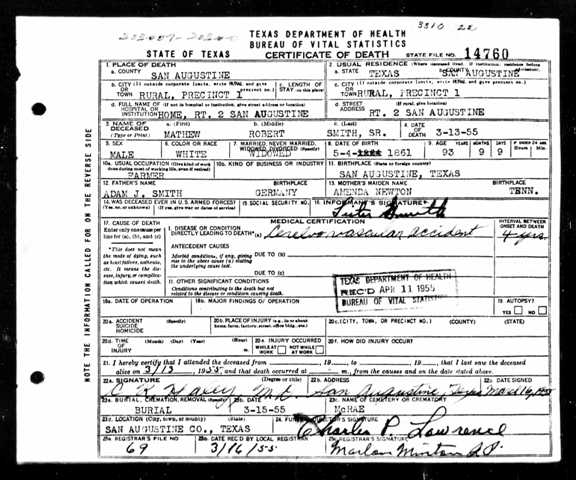 3310 22
TEXAS DEPARTMENT OF HEALTH
BUREAU OF VITAL STATISTICS
STATE OF TEXAS CERTIFICATE OF DEATH STATE FILE NO. 14760
1. PLACE OF DEATH 2. USUAL RESIDENCE (Where deceased lived. If institution: residence before admission)
a. COUNTY SAN AUGUSTINE a. STATE TEXAS COUNTY SAN AUGUSTINE
b. CITY (If outside corporate limits, write RURAL and give precinct no.) c. LENGTH OF STAY c. CITY (If outside corporate limits, write RURAL and give precinct no.)
OR TOWN RURAL, PRECINCT 1 OR TOWN RURAL, PRECINCT 1
d. FULL NAME OF (If not in hospital or institution, give street address or location) d. STREET ADDRESS (If rural, give location)
HOSPITAL OR INSTITUTION HOME, RT. 2 SAN AUGUSTINE RT. 2 SAN AUGUSTINE
3. NAME OF DECEASED (Type or Print) a. (First) b. (Middle) c. (Last) 4. DATE OF DEATH
MATHEW ROBERT SMITH, SR. 3-13-55
5. SEX 6. COLOR OR RACE 7. MARRIED, NEVER MARRIED, WIDOWED, DIVORCED (Specify) 8. DATE OF BIRTH 9. AGE YEARS MONTHS DAYS IF UNDER 24 HRS. Hours Min.
MALE WHITE WIDOWED 5-4- 1861 93 9 9
10a. USUAL OCCUPATION (Give kind of work done during most of working life, even if retired) 10b. KIND OF BUSINESS OR INDUSTRY 11. BIRTHPLACE (State or foreign country)
FARMER SAN AUGUSTINE, TEXAS
12. FATHER'S NAME BIRTHPLACE 13. MOTHER'S MAIDEN NAME BIRTHPLACE
ADAM J. SMITH GERMANY AMENDA NEWTON TENN.
14. WAS DECEASED EVER IN U.S. ARMED FORCES? 15. SOCIAL SECURITY NO. 16. INFORMANT'S SIGNATURE
(Yes, no, or unknown) (If yes, give war or dates of service) Smith
17. CAUSE OF DEATH MEDICAL CERTIFICATION INTERVAL BETWEEN ONSET AND DEATH
Enter only one cause per line for (a), (b), and (c) I. DISEASE OR CONDITION DIRECTLY LEADING TO DEATH (a) Cerebrovascular accident 4 yrs.
*This does not mean the mode of dying, such as heart failure, asthenia, etc. It means the disease, injury, or complication which caused death.
ANTECEDENT CAUSES
Morbid conditions, if any, giving rise to the above cause (a) stating the underlying cause last. DUE TO (b)
DUE TO (c)
II. OTHER SIGNIFICANT CONDITIONS
Conditions contributing to the death but not related to the disease or condition causing death.
TEXAS DEPARTMENT OF HEALTH
REC'D APR 11 1955
BUREAU OF VITAL STATISTICS
18a. DATE OF OPERATION 18b. MAJOR FINDINGS OF OPERATION 19. AUTOPSY?
YES NO
20a. ACCIDENT SUICIDE HOMICIDE (Specify) 20b. PLACE OF INJURY (e.g., in or about home, farm, factory, street, office bldg., etc.) 20c. (CITY, TOWN, OR PRECINCT NO.) (COUNTY) (STATE)
20d. TIME OF INJURY (Month) (Day) (Year) (Hour) 20e. INJURY OCCURRED WHILE AT WORK NOT WHILE AT WORK 20f. HOW DID INJURY OCCUR?
21. I hereby certify that I attended the deceased from 19 to 19, that I last saw the deceased
alive on 3/13 1955 and that death occurred at m., from the causes and on the date stated above.
22a. SIGNATURE 22b. ADDRESS 22c. DATE SIGNED
C. R. Haley M.d. San Augustine, Texas
23a. BURIAL, CREMATION, REMOVAL (Specify) 23b. DATE 23c. NAME OF CEMETERY OR CREMATORY
BURIAL 3-15-55 McRAE
23d. LOCATION (City, town, or county) (State) 24. FUNERAL DIRECTOR'S SIGNATURE
SAN AUGUSTINE CO., TEXAS Charles P. Lawrence
25a. REGISTRAR'S FILE NO. 25b. DATE REC'D BY LOCAL REGISTRAR 25c. REGISTRAR'S SIGNATURE
69 3/16/55 Marlan Minton
NOTE THE INFORMATION CALLED FOR ON THE REVERSE SIDE